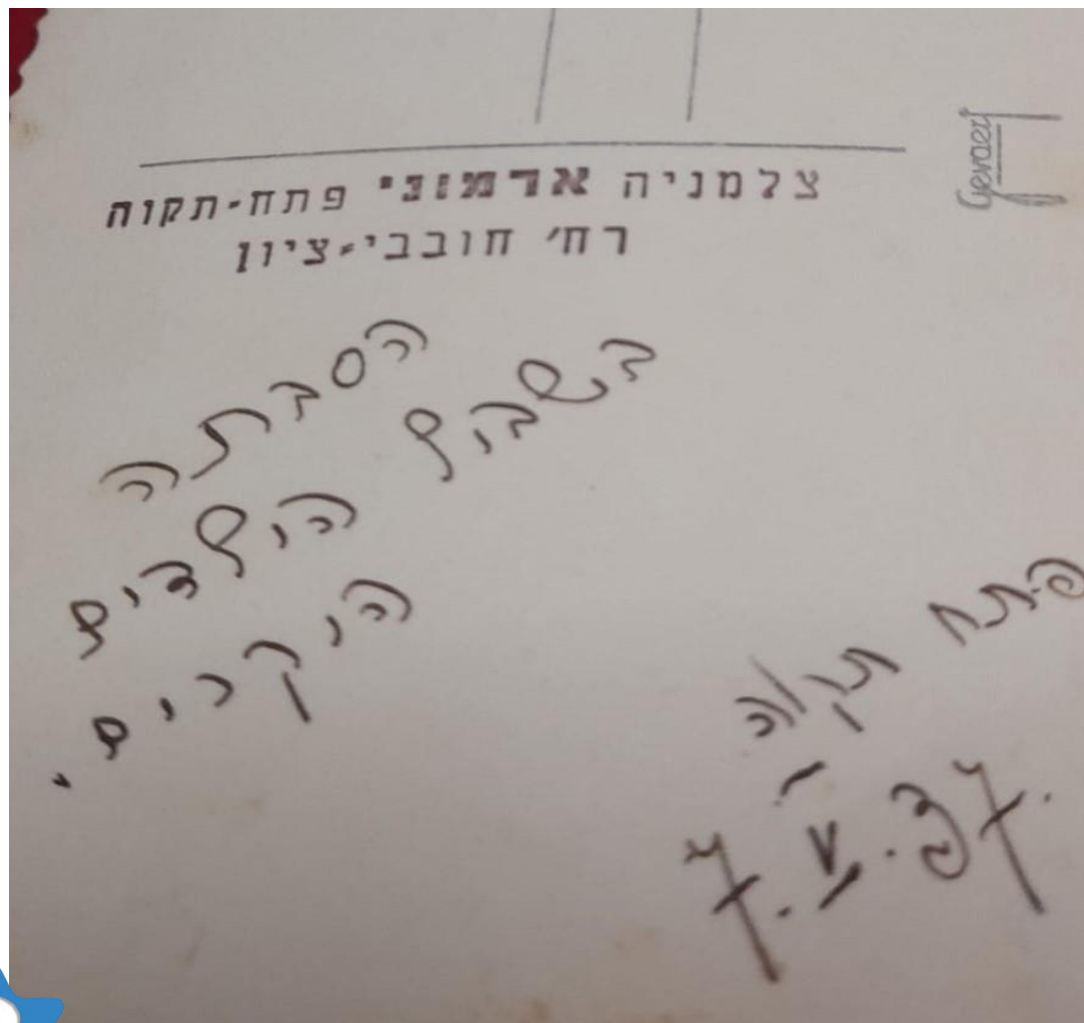 Gevaert
צלמניה ארמוני פתח-תקוה
רח' חובבי-ציון
הסבתה
בשביל הילדים
היקרים.
פתח תקוה
7.V.37.